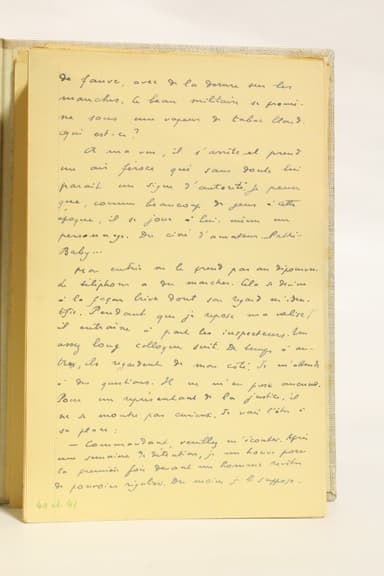 de fauve, avec de la dorure sur les
manches. Le beau militaire se promè-
ne sous une vapeur de tabac blond.
Qui est-ce ?
A ma vue, il s'arrête et prend
un air féroce qui sans doute lui
paraît un signe d'autorité. Je pense
que, comme beaucoup de gens à cette
époque, il se joue à lui-même un
personnage. Du ciné d'amateur. Pathé-
Baby...
Mon entrée ne le prend pas au dépourvu.
Le téléphone a dû marcher. Cela se devine
à la façon brève dont son regard m'iden-
tifie. Pendant que je repose ma valise,
il entraîne à part les inspecteurs. Un
assez long colloque suit. De temps à au-
tres, ils regardent de mon côté. Je m'attends
à des questions. Il ne m'en pose aucune.
Pour un représentant de la justice, il
ne se montre pas curieux. Je vais l'être à
sa place :
— Commandant, veuillez m'écouter. Après
une semaine de détention, je me trouve pour
la première fois devant un homme revêtu
de pouvoirs réguliers. Du moins je le suppose.